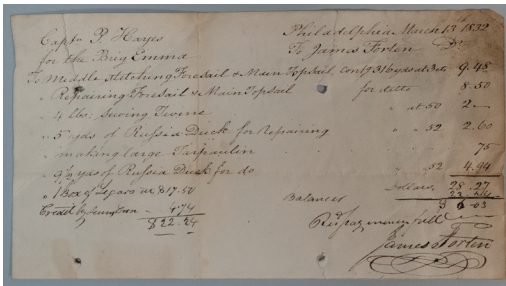 Philadelphia March 13 1832
Capt. P. Hayes
for the Brig Emma
To James Forten Dr.
To Middle stitching Foresail & Main Topsail, cont'g 316 yds at 3cts 9.48
" Repairing Foresail & Main Topsail for ditto 8.50
" 4 lbs: Sewing Twine " at 50 2—
" 5 yds of Russia Duck for Repairing " " 52 2.60
" making large Tarpaulin 75
" 9½ yds of Russia Duck for do 52 4.94
Dollars 28.27
" 1 Box of Segars at $17.50
22.24
Credit by 4.74
Balance $ 6.03
$22.24
Rec'd pay in full
James Forten